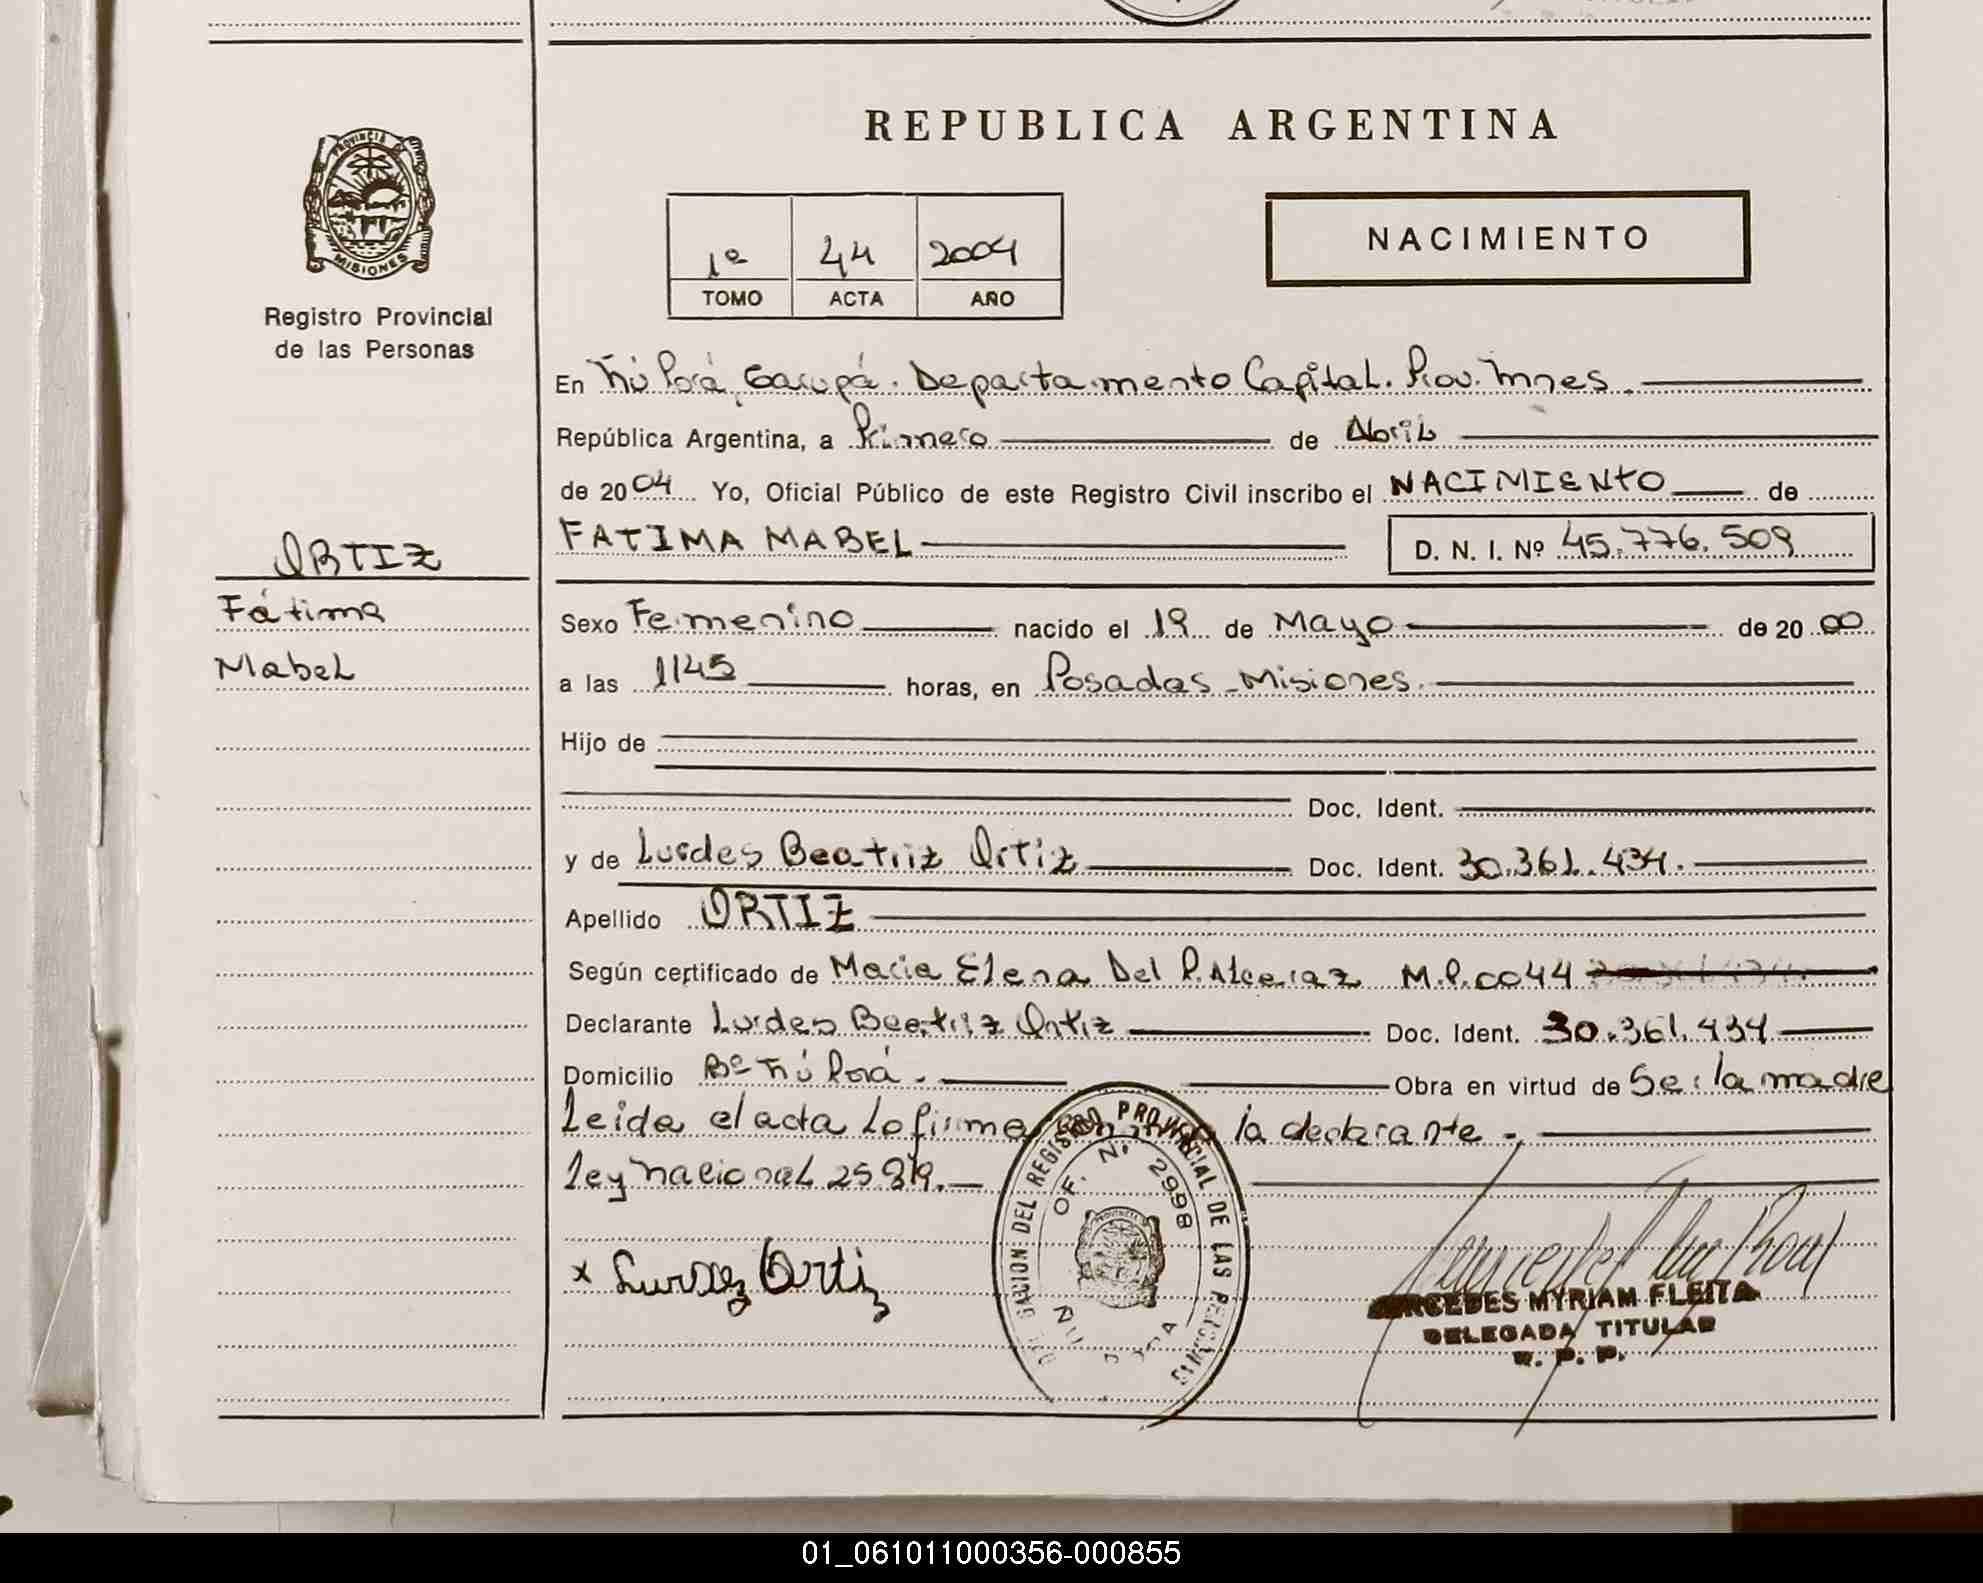 PROVINCIA DE
MISIONES
Registro Provincial
de las Personas
ORTIZ
Fátima
Mabel
REPUBLICA ARGENTINA
1º 44 2004
TOMO ACTA AÑO
NACIMIENTO
En Ñú Porá, Garupá. Departamento Capital. Prov. Mnes
República Argentina, a Primero de Abril
de 2004 Yo, Oficial Público de este Registro Civil inscribo el NACIMIENTO de
FATIMA MABEL D. N. I. Nº 45.776.509
Sexo Femenino nacido el 19 de Mayo de 2000
a las 1145 horas, en Posadas - Misiones.
Hijo de
Doc. Ident.
y de Lurdes Beatriz Ortiz Doc. Ident. 30.361.434.
Apellido ORTIZ
Según certificado de Maria Elena Del P. Alceraz M.P. 0044
Declarante Lurdes Beatriz Ortiz Doc. Ident. 30.361.434
Domicilio Bº Ñú Porá. Obra en virtud de Ser la madre
Leida el acta La firma la declarante -
Ley Nacional 25819.
DELEGACION DEL REGISTRO PROVINCIAL DE LAS PERSONAS
OF. Nº 2998
ÑU PORA
x Lurdez Ortiz
MERCEDES MYRIAM FLEITA
DELEGADA TITULAR
R. P. P.
01_061011000356-000855